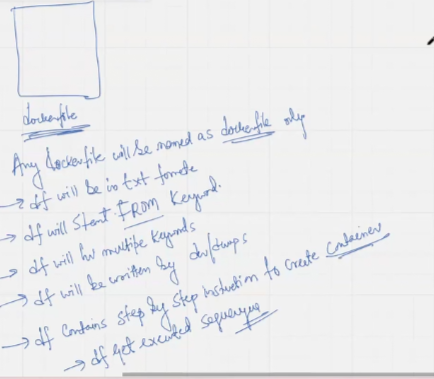 dockerfile
Any dockerfile will be named as dockerfile only
→ df will be in txt formate
→ df will start FROM Keyword.
→ df will hv multipe Keywords
→ df will be written by dev/
→ df contains step by step instruction to create container
→ df get executed